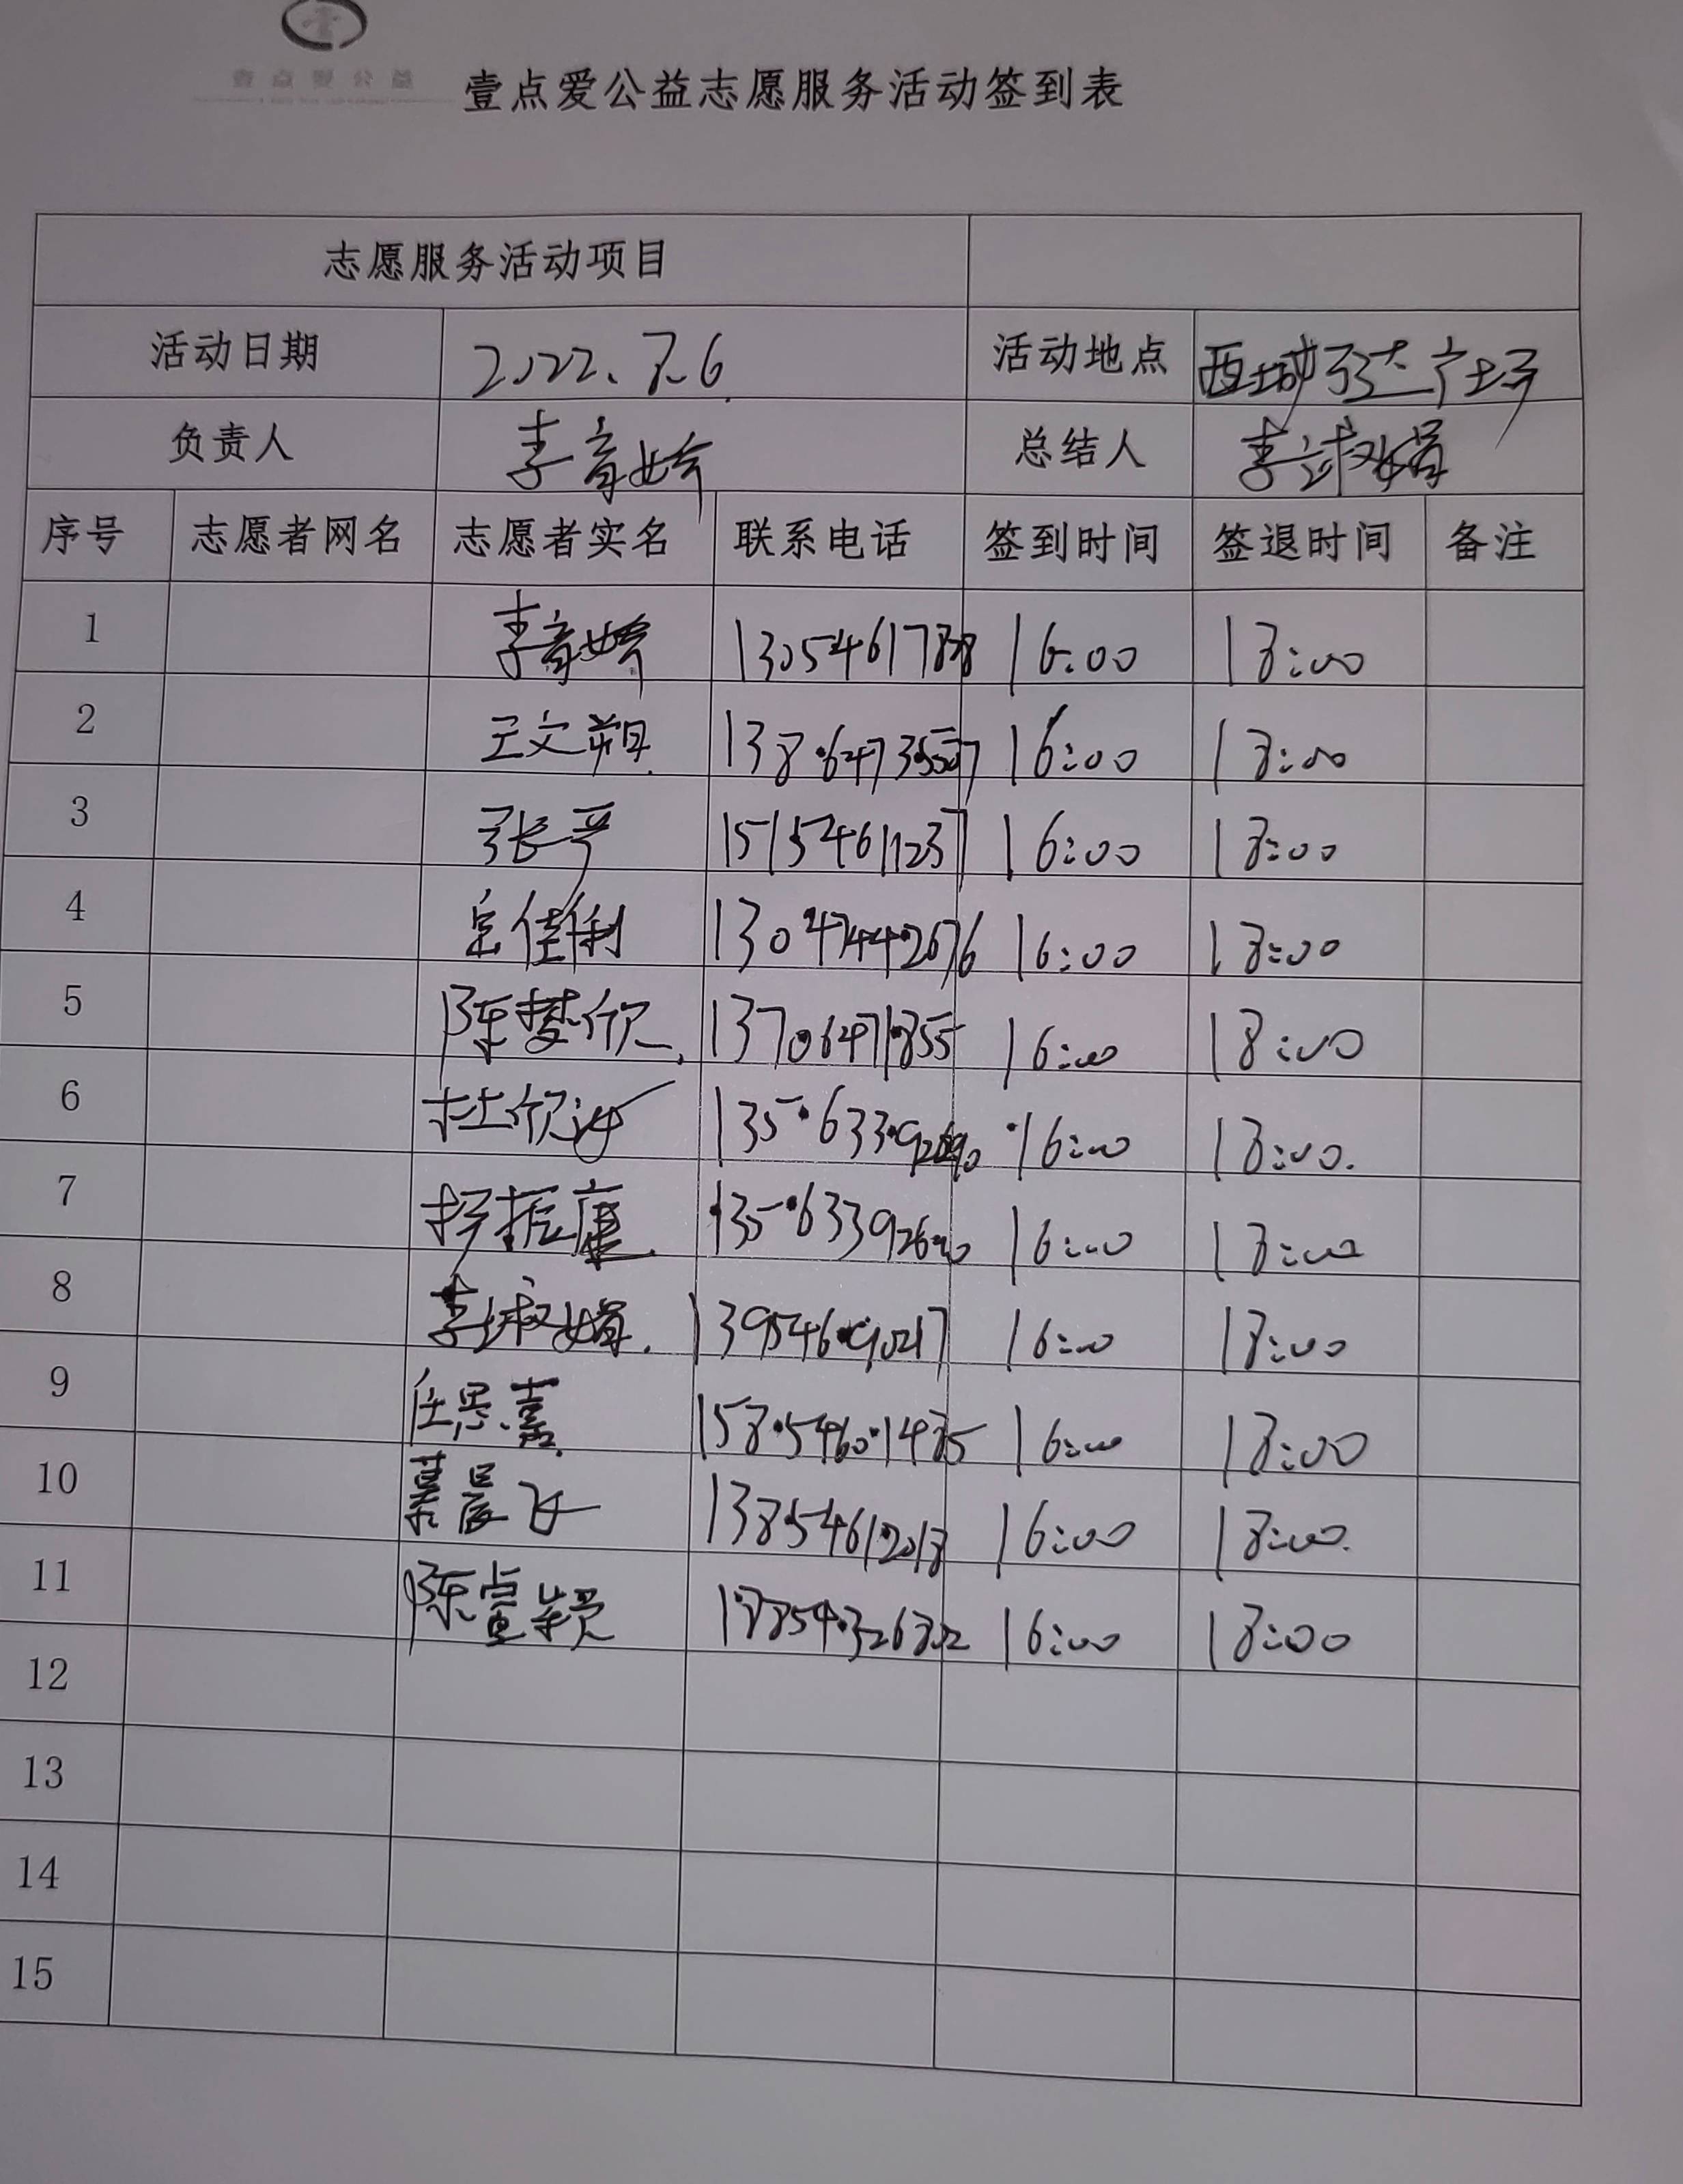 壹点爱公益
壹点爱公益志愿服务活动签到表
志愿服务活动项目
活动日期 2022.7.6 活动地点 西城万达广场
负责人 李音娇 总结人 李淑娟
序号 志愿者网名 志愿者实名 联系电话 签到时间 签退时间 备注
1 李音娇 16:00 18:00
2 王文朔 16:00 18:00
3 张平 15154611237 16:00 18:00
4 佳利 16:00 18:00
5 陈梦欣 13706471855 16:00 18:00
6 杜欣 16:00 18:00
7 振 16:00 18:00
8 李淑娟 13954690217 16:00 18:00
9 任思嘉 158·5460·1485 16:00 18:00
10 慕晨飞 13854612018 16:00 18:00
11 陈宣颖 16:00 18:00
12
13
14
15